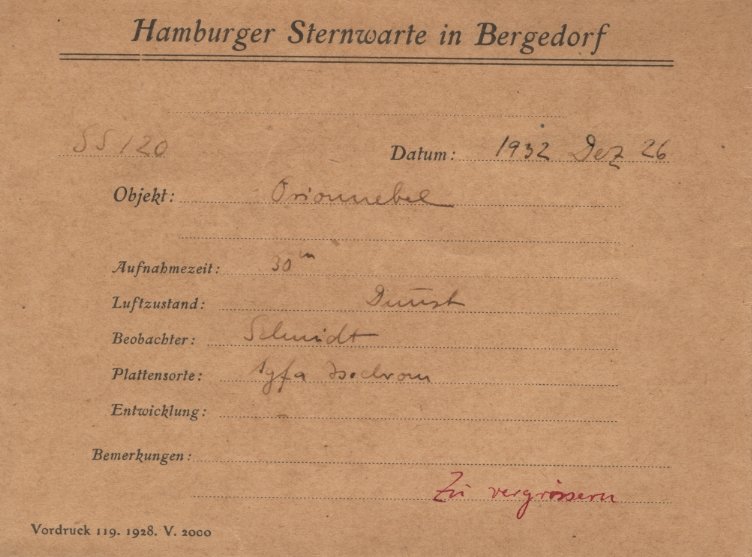 Hamburger Sternwarte in Bergedorf
SS 120 Datum: 1932 Dez 26
Objekt: Orionnebel
Aufnahmezeit: 30m
Luftzustand: Dunst
Beobachter: Schmidt
Plattensorte: Agfa Isochrom
Entwicklung: –
Bemerkungen:
Zu vergrössern
Vordruck 119. 1928. V. 2000